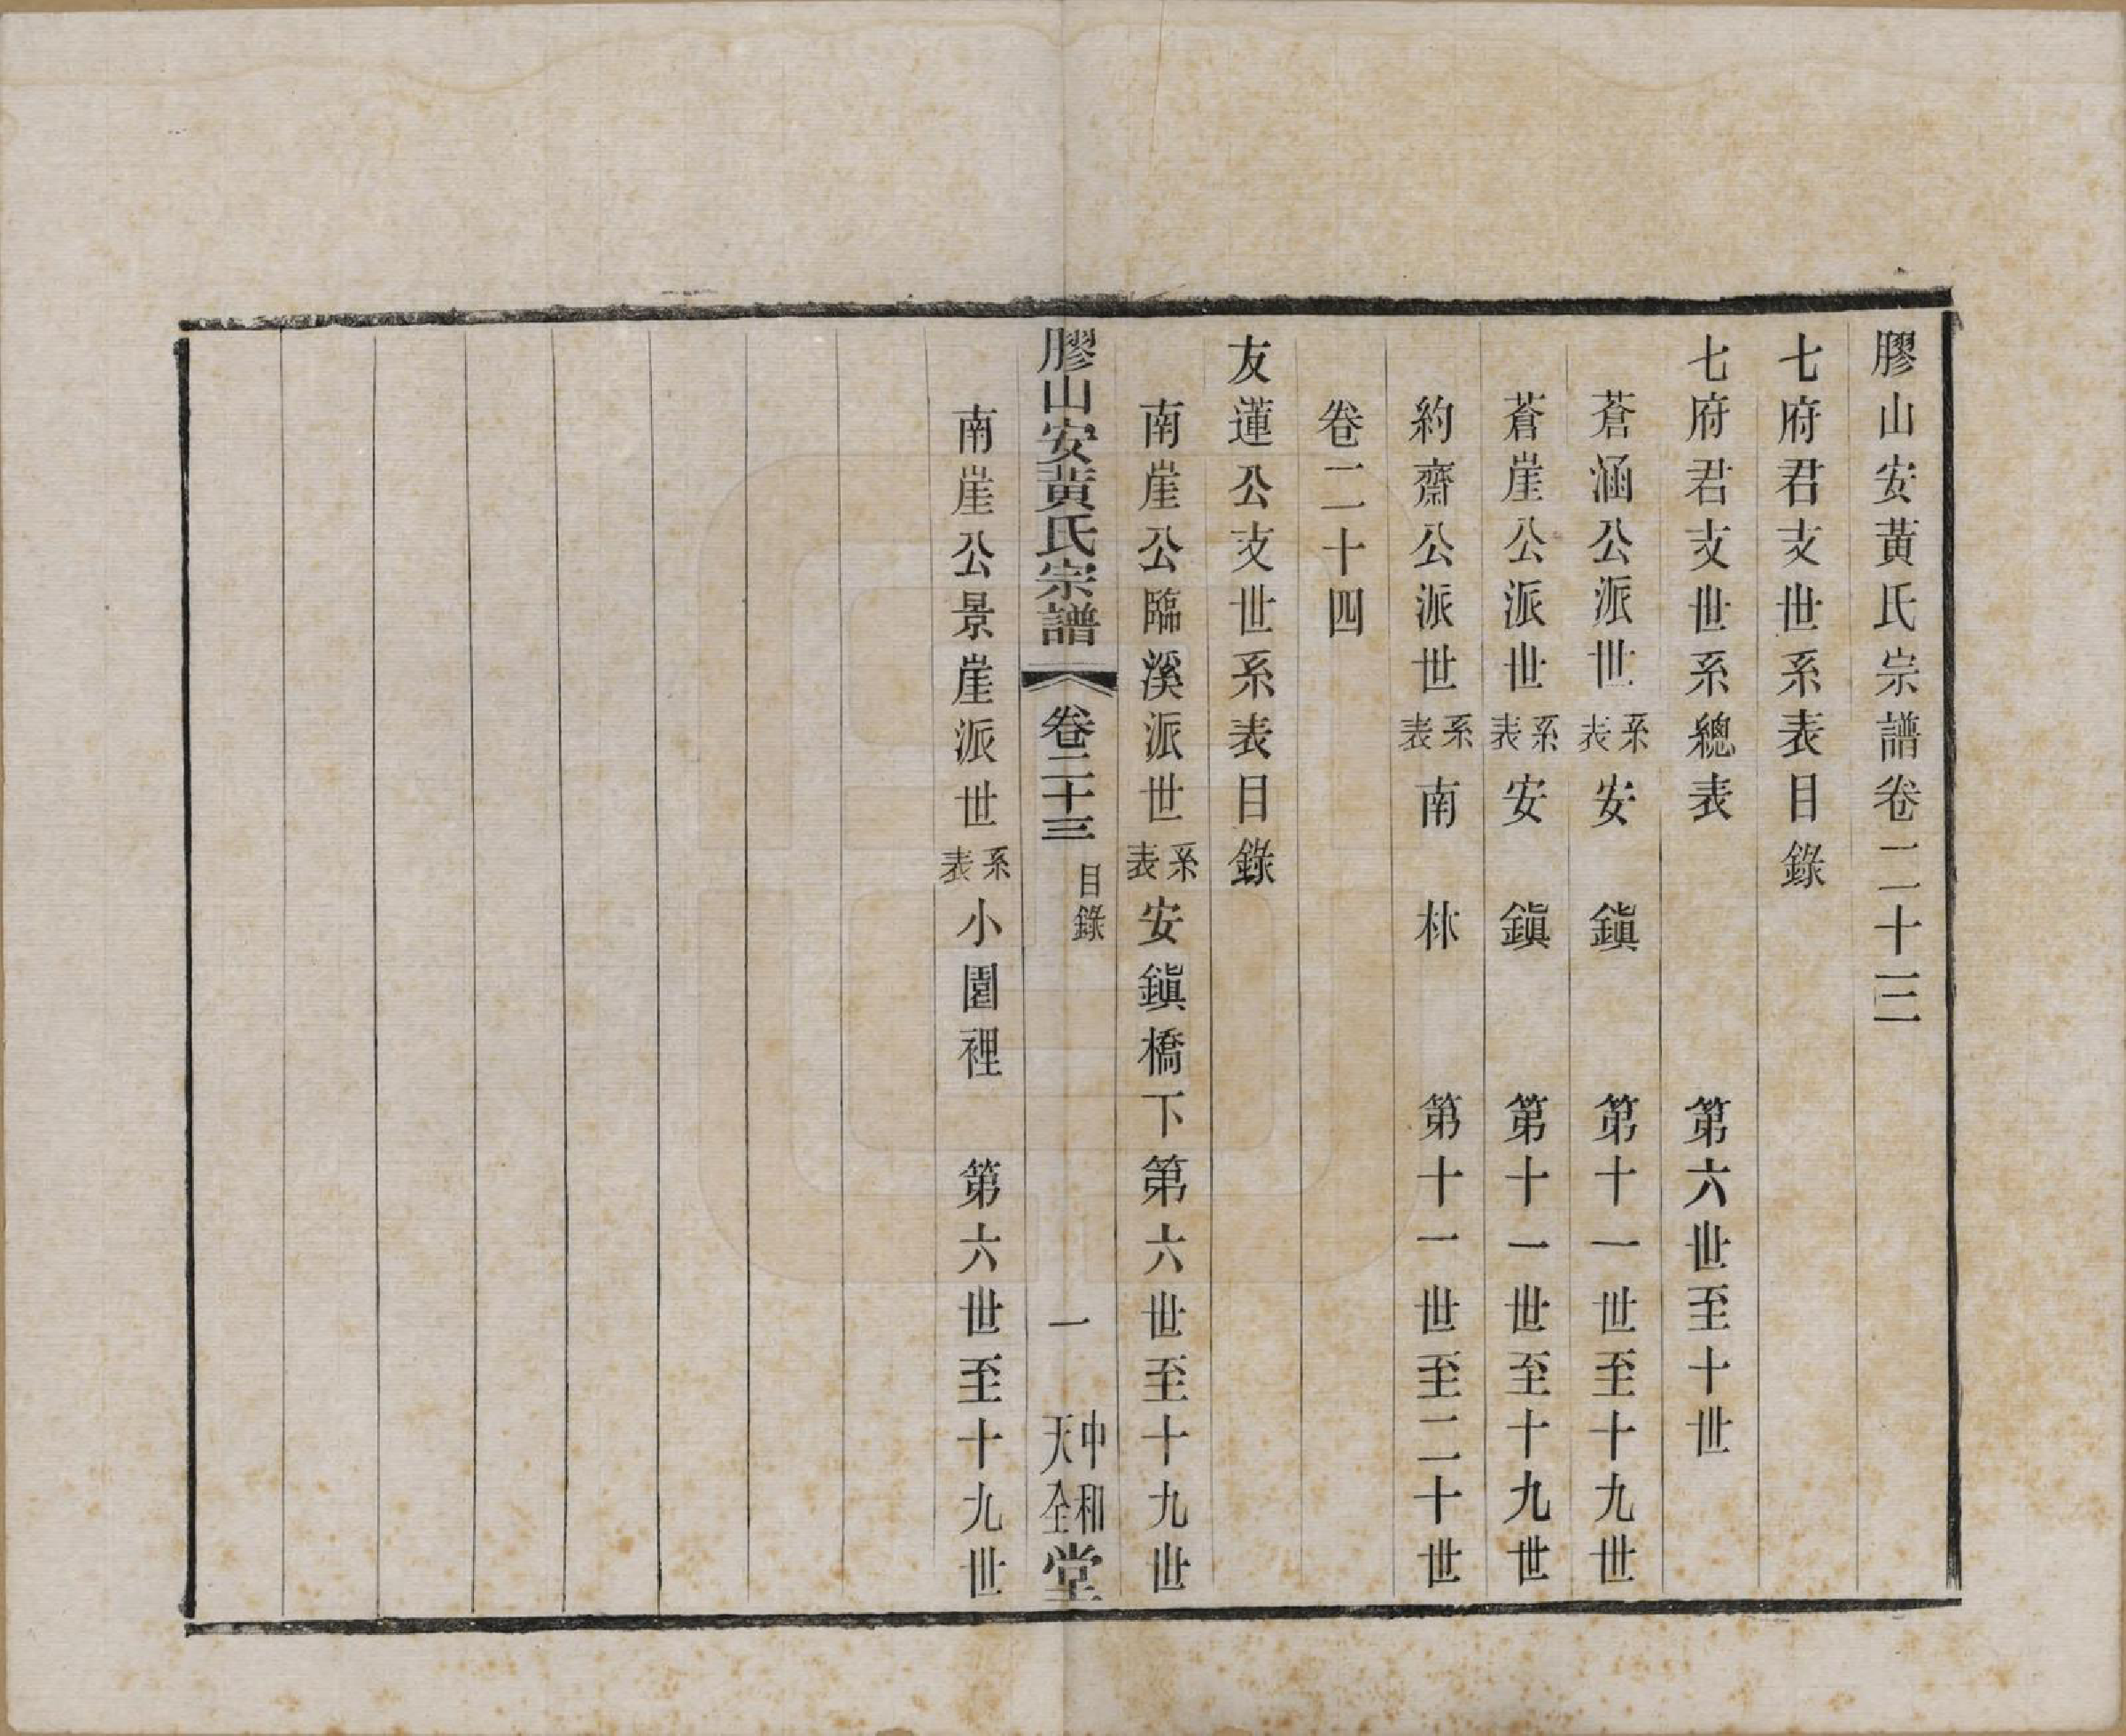 膠山安黃氏宗譜卷二十三
七府君支世系表目錄
七府君支世系總表 第六世至十世
蒼涵公派世系表安鎭 第十一世至十九世
蒼崖公派世系表安鎭 第十一世至十九世
約齋公派世系表南林 第十一世至二十世
卷二十四
友蓮公支世系表目錄
南崖公臨溪派世系表安鎭橋下第六世至十九世
膠山安黃氏宗譜 卷二十三 目錄 一 中和天全堂
南崖公景崖派世系表小園裡 第六世至十九世